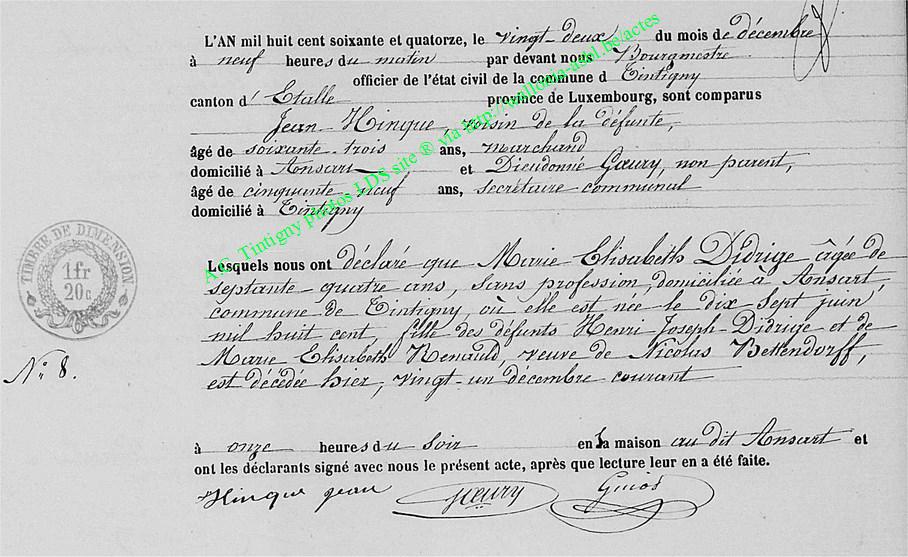 L'AN mil huit cent soixante et quatorze, le vingt-deux du mois de décembre
à neuf heures du matin par devant nous Bourgmestre
officier de l'état civil de la commune d Tintigny
canton d' Etalle province de Luxembourg, sont comparus
Jean Hinque, voisin de la défunte,
âgé de soixante-trois ans, marchand
domicilié à Ansart et Dieudonné Goeury, non parent,
âgé de cinquante neuf ans, secrétaire communal
domicilié à Tintigny
Lesquels nous ont déclaré que Marie Elisabeth Didrige âgée de
septante-quatre ans, sans profession, domiciliée à Ansart,
commune de Tintigny, où elle est née le dix sept juin
mil huit cent, fille des défunts Henri-Joseph-Didrige et de
Marie Elisabeth Renauld, veuve de Nicolas Bettendorff,
est décédée hier, vingt-un décembre courant
à onze heures du soir en la maison au dit Ansart et
ont les déclarants signé avec nous le présent acte, après que lecture leur en a été faite.
Hinque jean Goeury
TIMBRE DE DIMENSION
1fr
20c
No. 8.
A.C. Tintigny photos LDS site ® via http://wallonia-asbl.be/actes